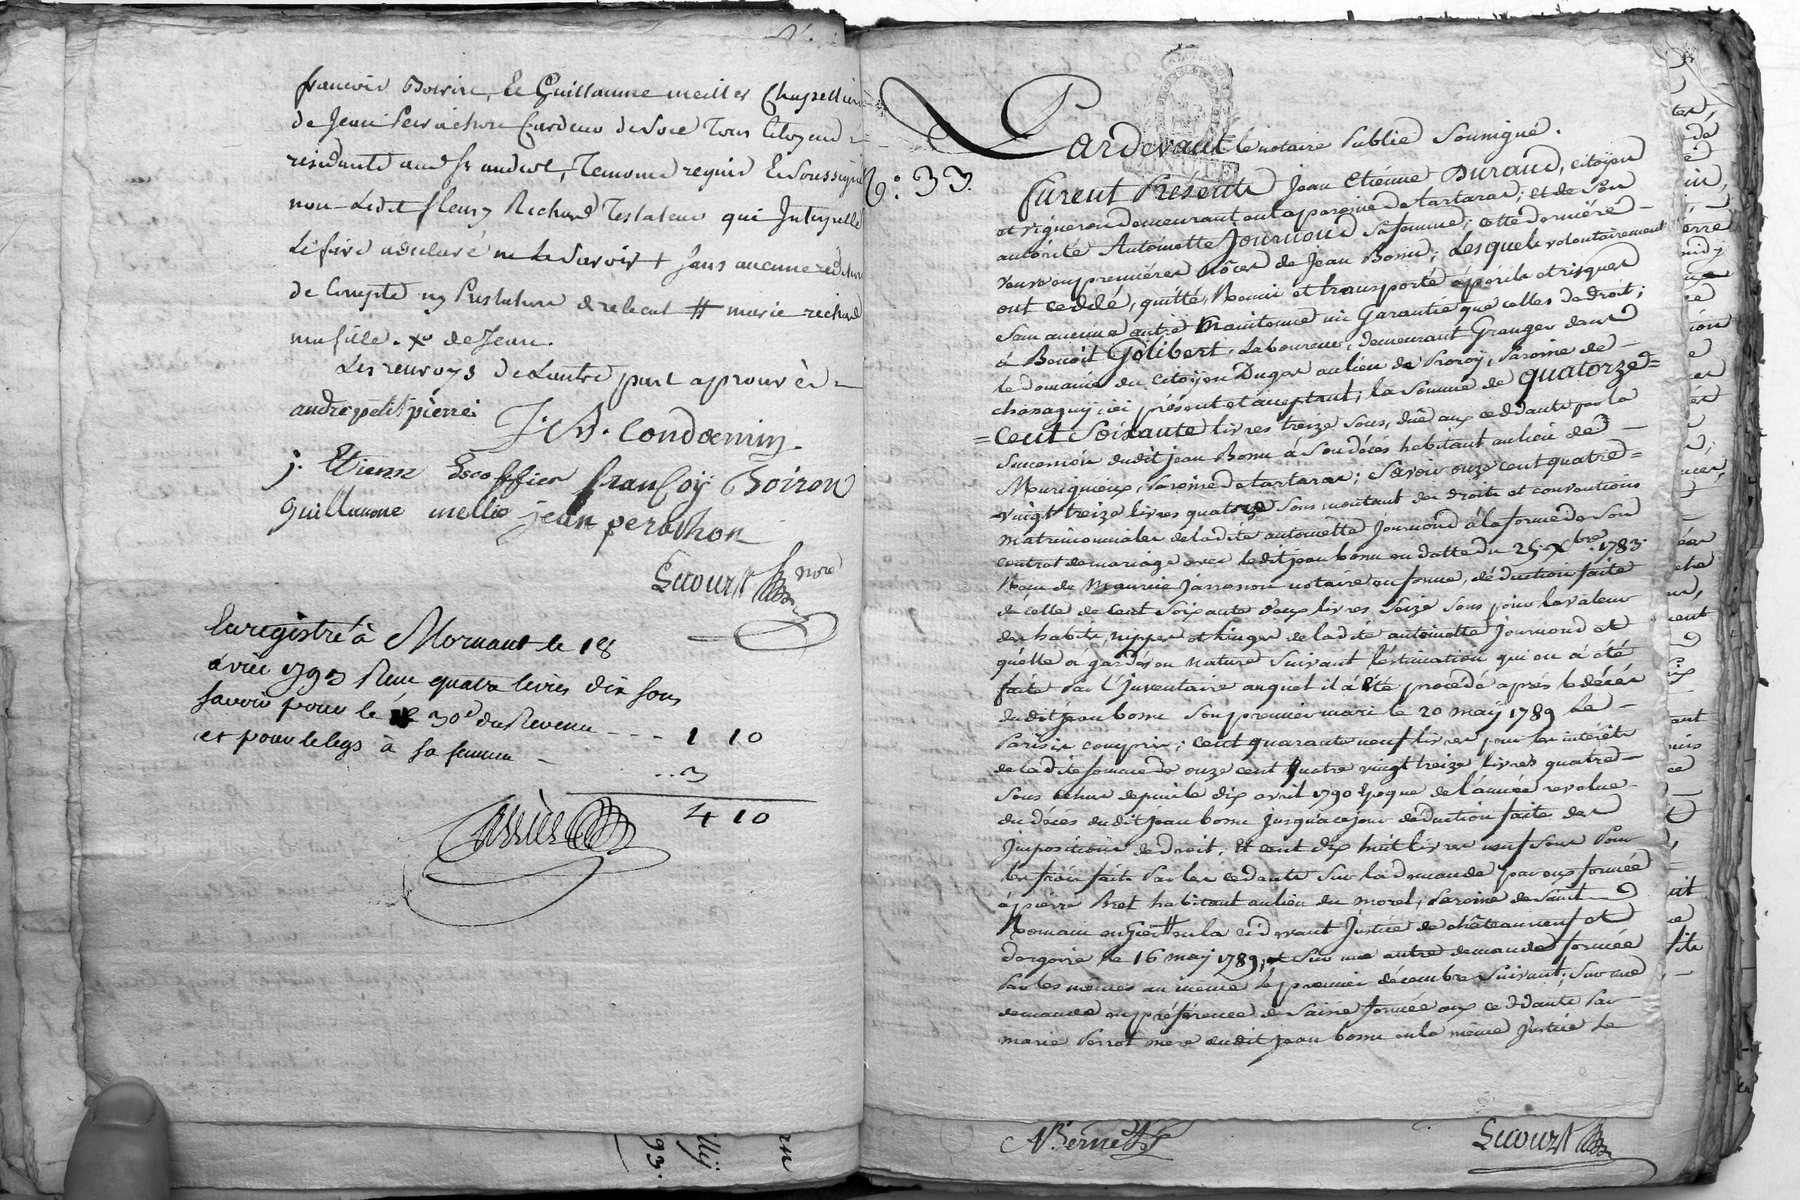 francois Boiron, et Guillaume meiller Chapelliers
de Jean Perrachon Cardeur de Soie Tous Citoyens
residants aud St andeol, Temoins requis Et Soussignés
non Ledit fleury Richard Testateur qui Interpellé
de faire a déclaré ne le Savoir + Sans aucune reddition
de Compte ny Prestation de relicat # marie richard
ma fille. x de Jean.
Les renvoys de Lautre part approuvés
andre petit pierre
J. B. Condamin.
j. Etienne Escoffier francoy Boiron
guillaume mellie jean perachon
Lecourt nore
Enregistré à Mornant le 18
avril 1793 Reçu quatre livres dix sous
savoir pour le 30e du Revenu - - - 1 10
et pour le legs à sa femme - .. 3
4 10
N.o 33.
Pardevant le notaire Public Soussigné.
furent Présents Jean Etienne Durand, citoyen
et vigneron demeurant en la paroisse de tartaras; et de Son
autorité Antoinette Journoud Sa femme; cette derniére
veuve en premiéres nôces de Jean Bonu; Lesquels volontairement
ont ceddé, quitté, Remis et transporté à perils et risques
Sans aucune autre Maintenue ni Garantie que celles de droit;
à Benoit Gilibert, Laboureur, demeurant Granger dans
le domaine du Citoyen Dugas au lieu de Paroisse de
chassagny; ici présent et acceptant; la Somme de quatorze
= Cent Soixante livres treize Sous, düe aux ceddants par la
Succession dudit jean Bonu à Son décés habitant au lieu de
Paroisse de tartaras; Savoir onze cent quatre
vingt treize livres quatorze Sous montant des droits et conventions
matrimonniales de ladite antoinette Journoud à la forme de Son
contrat de mariage avec ledit jean bonu en datte du 25 Xbre 1783.
Reçu de Maurice Jasseron notaire en forme, déduction faite
de celle de cent Soixante deux livres Seize Sous pour la valeur
des habits, nippes et linges de ladite antoinette Journoud et
quélle a gardés en nature Suivant l'éstimation qui en à été
faite Par l'Inventaire auquel il à été procédé aprés le décés
dudit jean bonu Son premier mari le 20 maÿ 1789 Le
Parisis compris; cent quarante neuf livres pour les intérêts
de ladite Somme de onze cent quatre vingt treize livres quatre
Sous échus depuis le dix avril 1790 époque de l'année revolue
du décés dudit jean bonu Jusqu'a ce jour déduction faite des
Impositions de droit; Et cent dix huit livres neuf Sous Pour
les frais faits Par les ceddants Sur la demande par eux formée
à pierre Bret habitant au lieu du morel, Paroisse de Saint
Romain en Gier # en la ci devant Justice de châteauneuf et
dargoire le 16 maÿ 1789; et Sur une autre demande formée
Par les mêmes au même le premier décembre Suivant; Sur une
demande en préférence de Saisie formée aux ceddants Par
marie Perrot mere dudit jean bonu en la même Justice Le
Lecourt